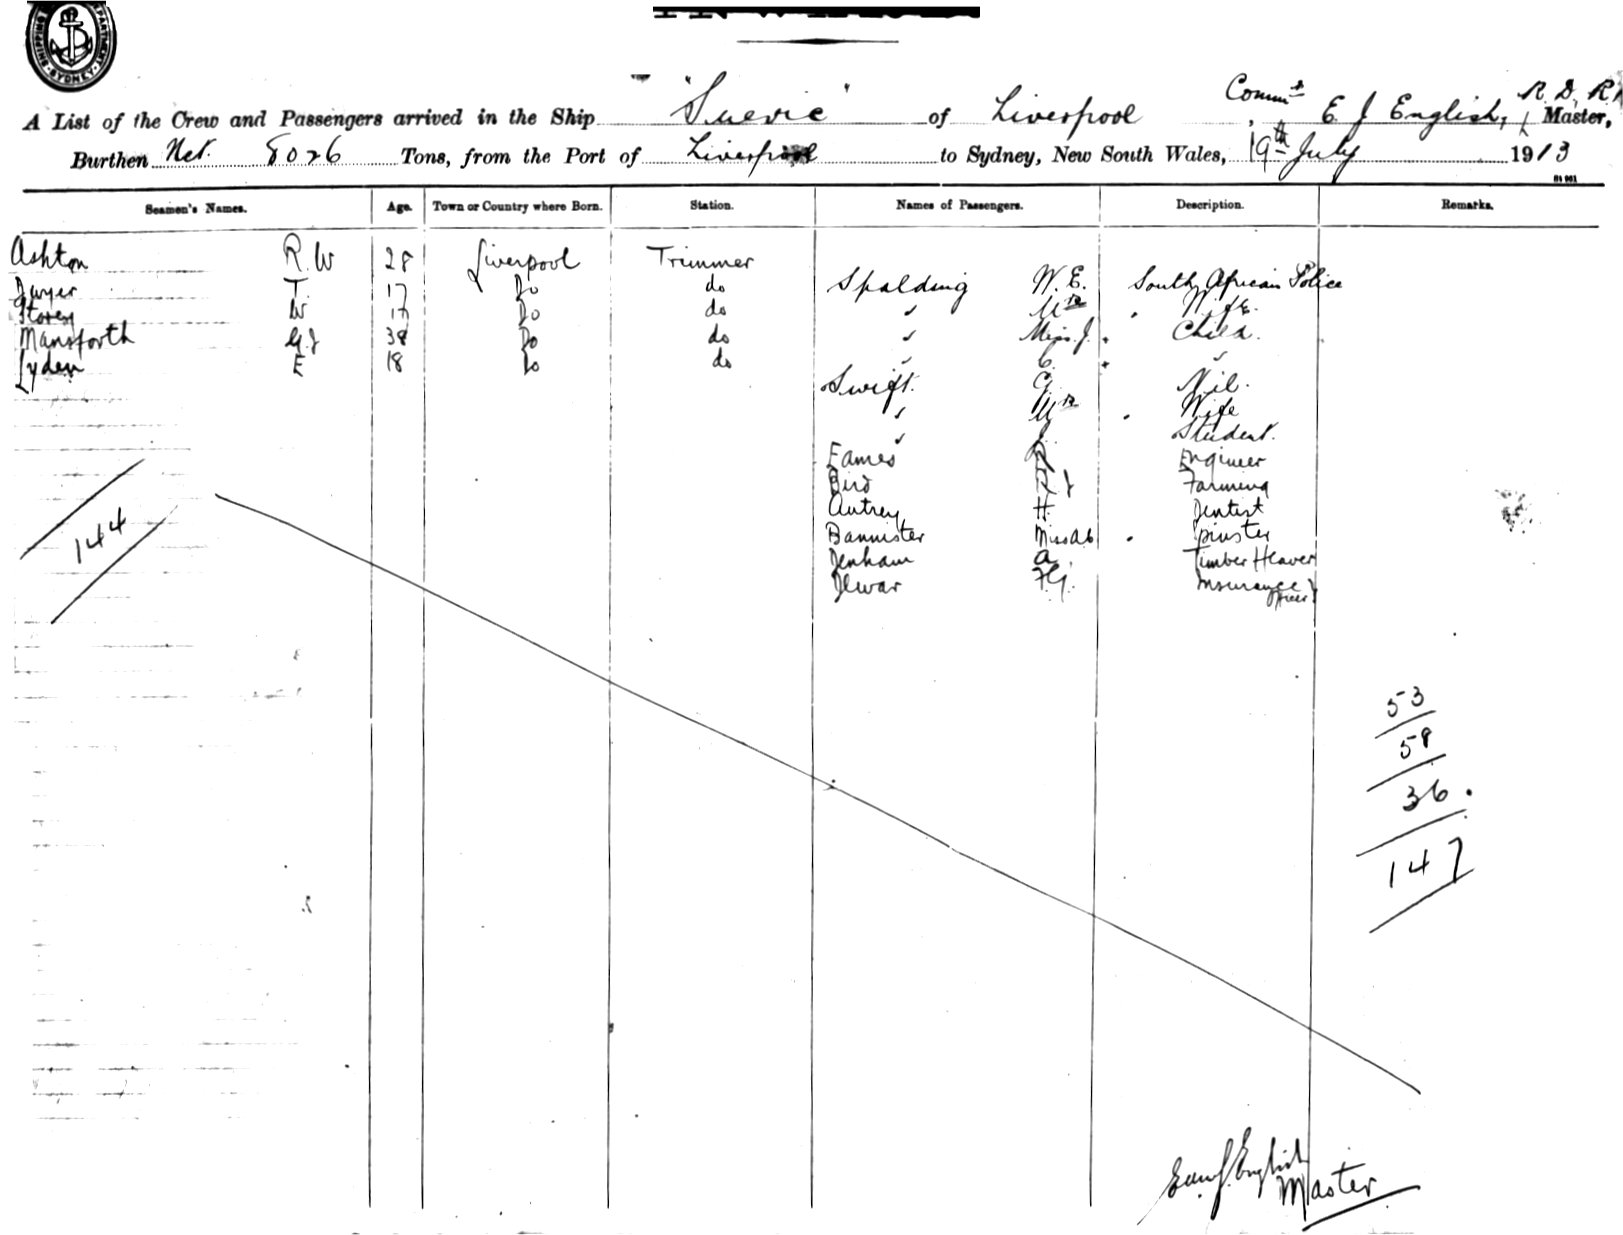 SHIPPING DEPARTMENT SYDNEY
A List of the Crew and Passengers arrived in the Ship "Suevic" of Liverpool, Comm^r E J English, R. D. R. Master,
Burthen Net. 8026 Tons, from the Port of Liverpool to Sydney, New South Wales, 19th July 1913
Seamen's Names. Age. Town or Country where Born. Station. Names of Passengers. Description. Remarks.
Ashton R.W 28 Liverpool Trimmer
Dwyer T 17 Do do Spalding W.E. South African Police
Storey W 17 Do do " Mrs " Wife.
Mansforth G.J 38 Do do " Miss J. " Child.
Lyden E 18 Do do " "
Swift. G. Nil.
" Mrs " Wife
" J. Student.
Eames R Engineer
Bird F J Farming
Autrey H Dentist
Bannister Miss " Spinster
Denham A. Timber Heaver
Dewar F.G. Insurance Officer
144
53
58
36.
147
E. J. English
Master